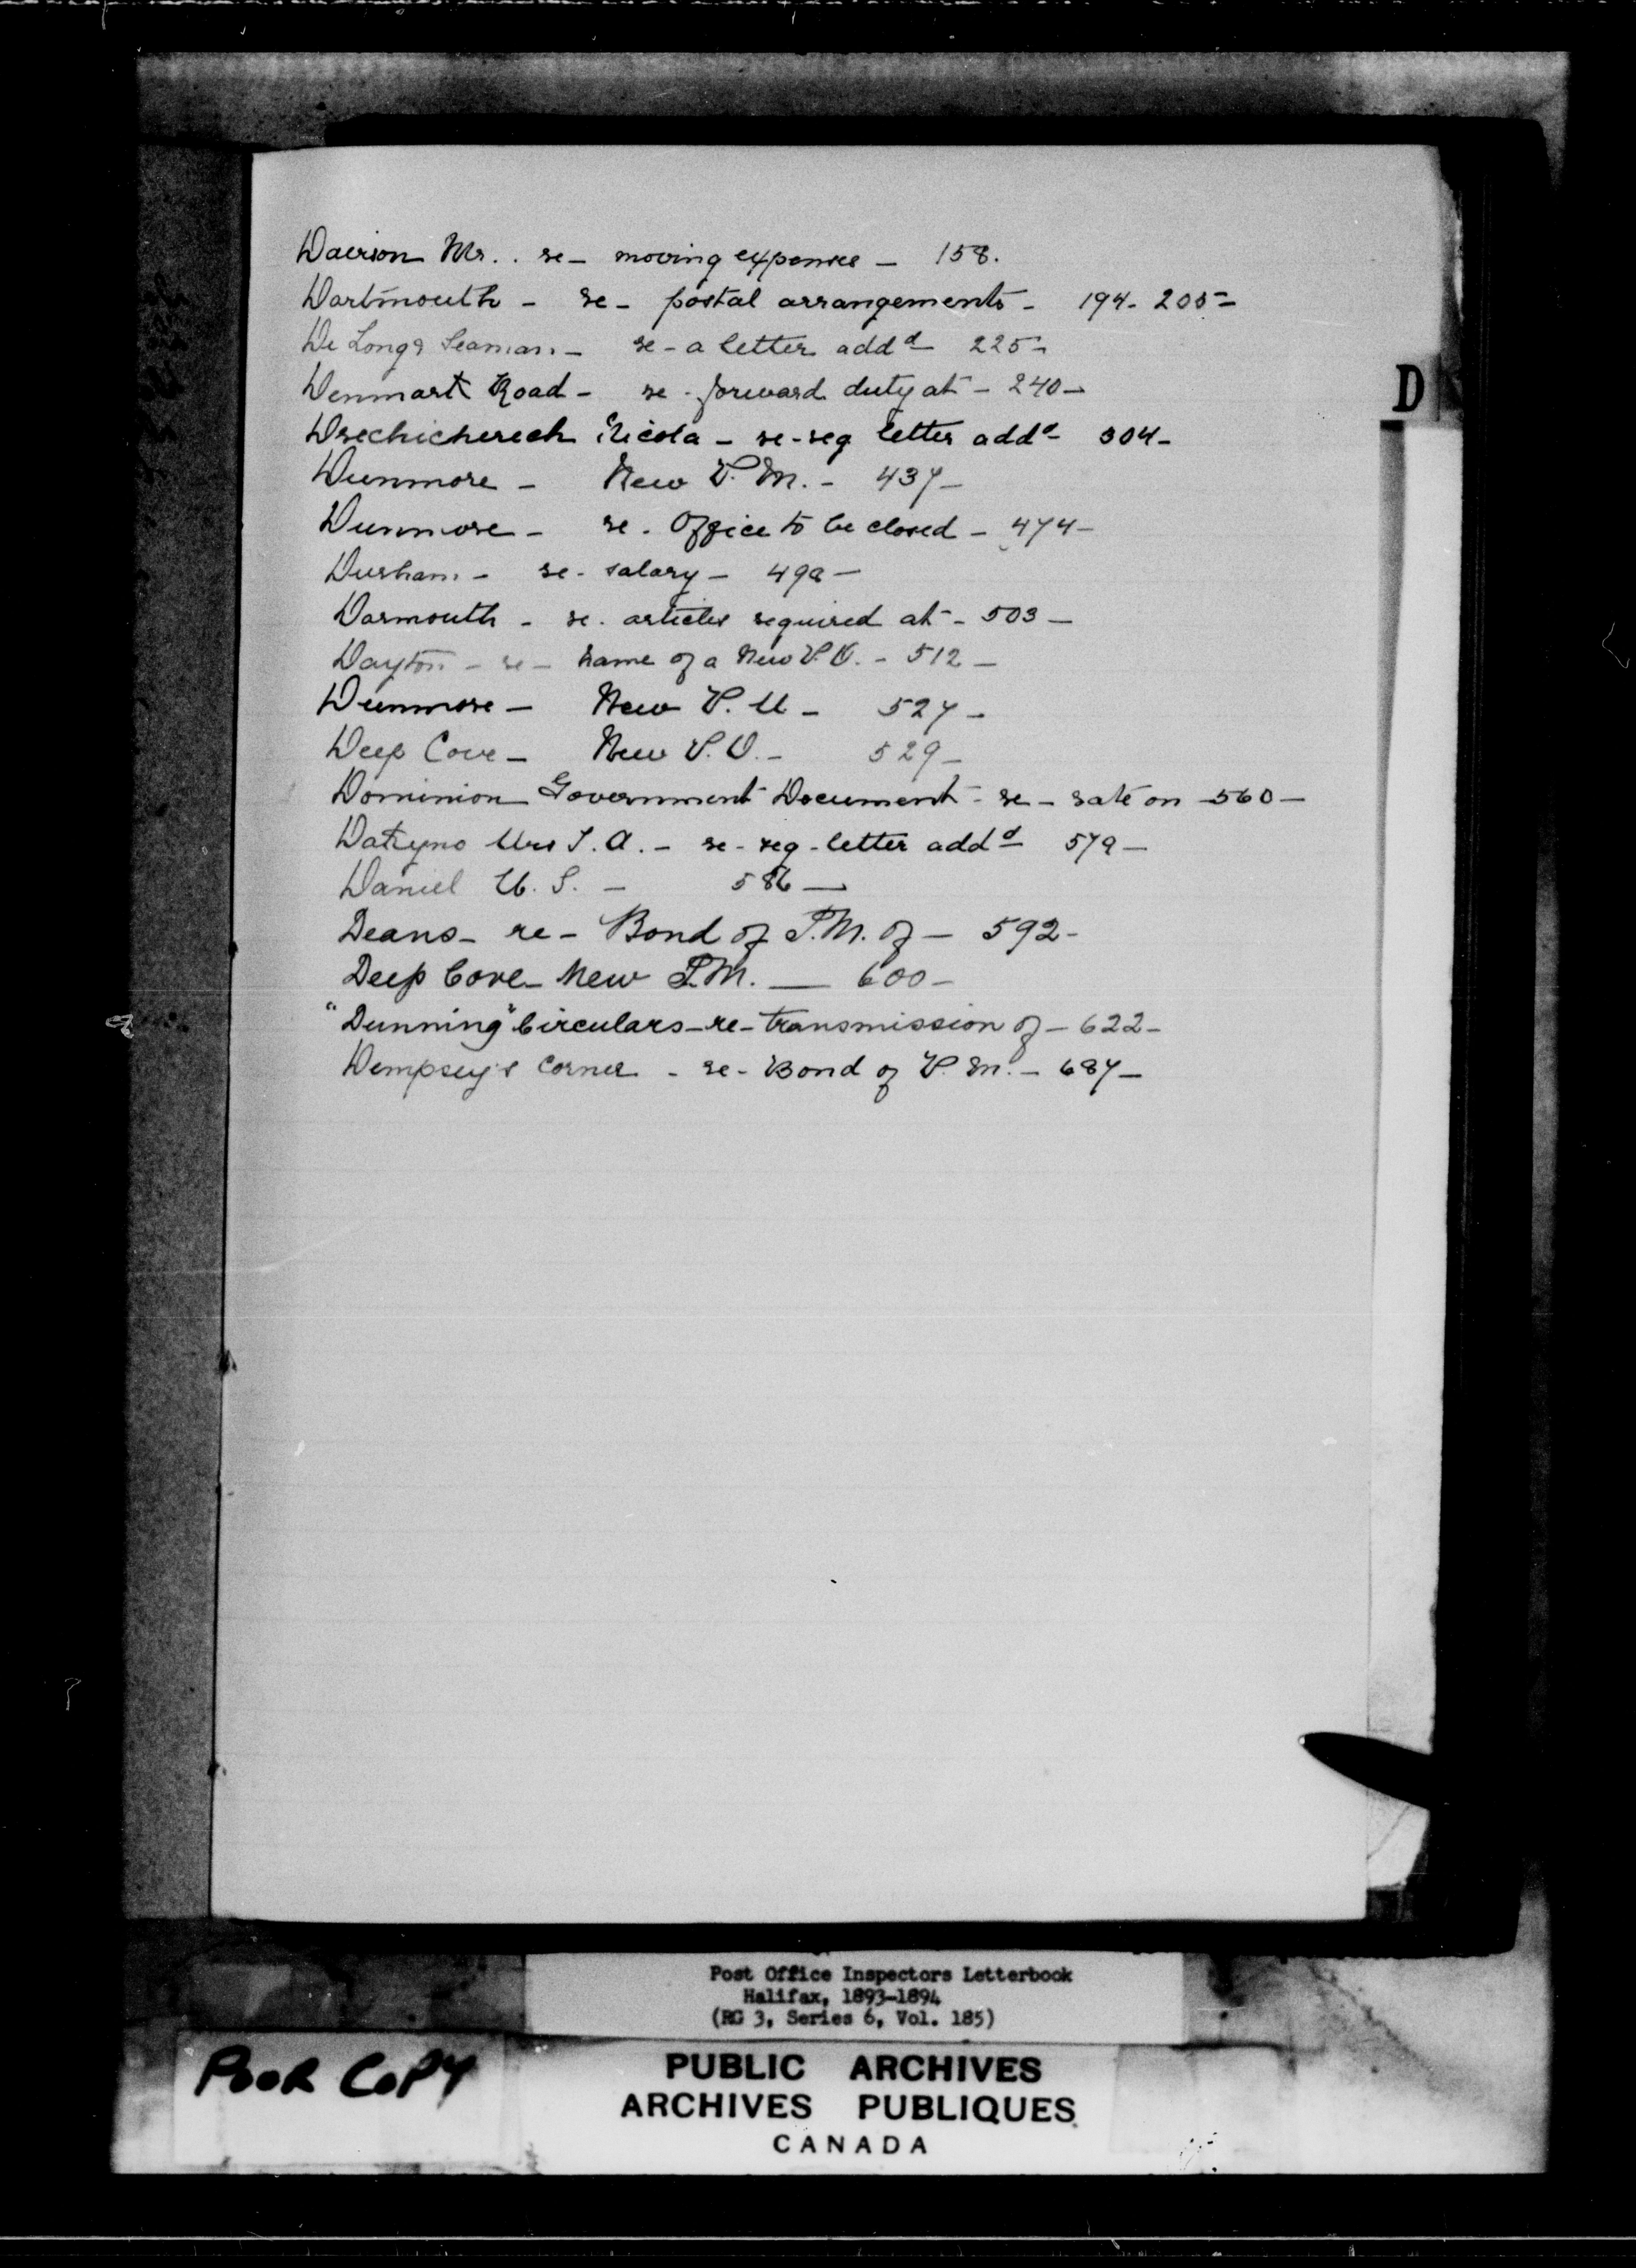 Davison Mr. . re - moving expenses - 158.
Dartmouth - re - postal arrangements - 194 - 205 -
De Long & Seaman - re - a letter addd 225 -
Denmark Road - re - forward duty at - 240 -
re - reg letter addd 304 -
Dunmore - New P.M. - 437 -
Dunmore - re . Office to be closed - 474 -
Durham - re - salary - 49
Darmouth - re . articles required at - 503 -
Dayton - re - name of a New P.O. - 512 -
Dunmore - New P.M - 527 -
Deep Cove - New P.O. - 529 -
Dominion Government Document - re - rate on - 560 -
Mrs - re - reg - letter addd 579 -
Daniel - 586 -
Deans - re - Bond of P.M. of - 592 -
Deep Cove - New P.M. - 600 -
"Dunning" Circulars - re - transmission of - 622 -
Dempsey's Corner - re - Bond of P.M. - 687 -
D
Post Office Inspectors Letterbook
Halifax, 1893-1894
(RG 3, Series 6, Vol. 185)
POOR COPY
PUBLIC ARCHIVES
ARCHIVES PUBLIQUES
CANADA